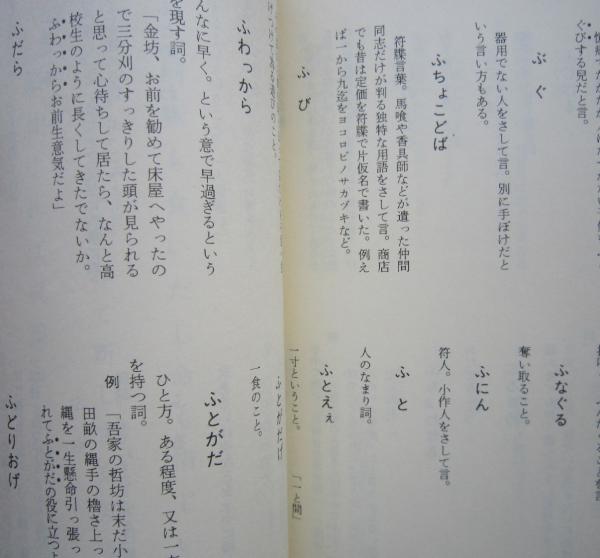 ぐびする兒だと言。
ぶぐ
器用でない人をさして言。別に手ぼけだと
いう言い方もある。
ふちょことば
符牒言葉。馬喰や香具師などが遣った仲間
同志だけが判る独特な用語をさして言。商店
でも昔は定価を符牒で片仮名で書いた。例え
ば一から九迄をヨコロビノサカヅキなど。
ふび
ふなぐる
奪い取ること。
ふにん
符人。小作人をさして言。
ふと
人のなまり詞。
ふとえぇ
一寸ということ。
「一と間」
ふわっから
んなに早く。という意で早過ぎるという
を現す詞。
「金坊、お前を勧めて床屋へやったの
で三分刈のすっきりした頭が見られる
と思って心待ちして居たら、なんと高
校生のように長くしてきたでないか。
ふわっからお前生意気だよ」
ふだら
ふとがだげ
一食のこと。
ふとがだ
ひと方。ある程度、又は一
を持つ詞。
例 「吾家の哲坊は末だ小
田畝の縄手の櫓さ上っ
縄を一生懸命引っ張っ
れてふとがだの役に立つよ
ふどりおげ